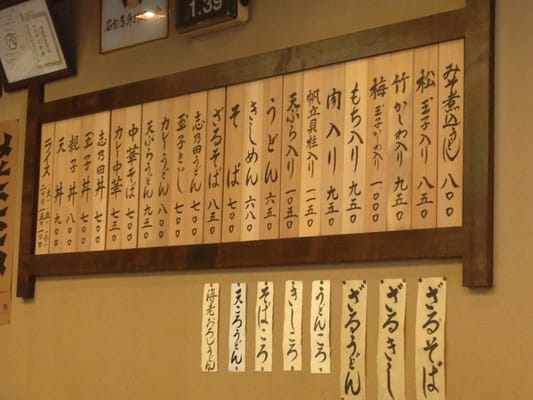 みそ煮込うどん 八〇〇
松 玉子入り 八五〇
竹 かしわ入り 九五〇
梅 玉子かしわ入り 一〇〇〇
もち入り 九五〇
肉入り 九五〇
帆立貝柱入り 一一五〇
天ぷら入り 一〇五〇
うどん 六五〇
きしめん 六八〇
そば 七〇〇
ざるそば 八五〇
志乃田うどん 七〇〇
玉子とじ 七〇〇
カレーうどん 八〇〇
天ぷらうどん 九五〇
中華そば 七〇〇
カレー中華 七五〇
志乃田丼 七〇〇
玉子丼 七〇〇
親子丼 八〇〇
天丼 九〇〇
ライス
1.39
ざるそば
ざるきし
ざるうどん
うどんころ
きしころ
そばころ
天ころうどん
海老おろしうどん